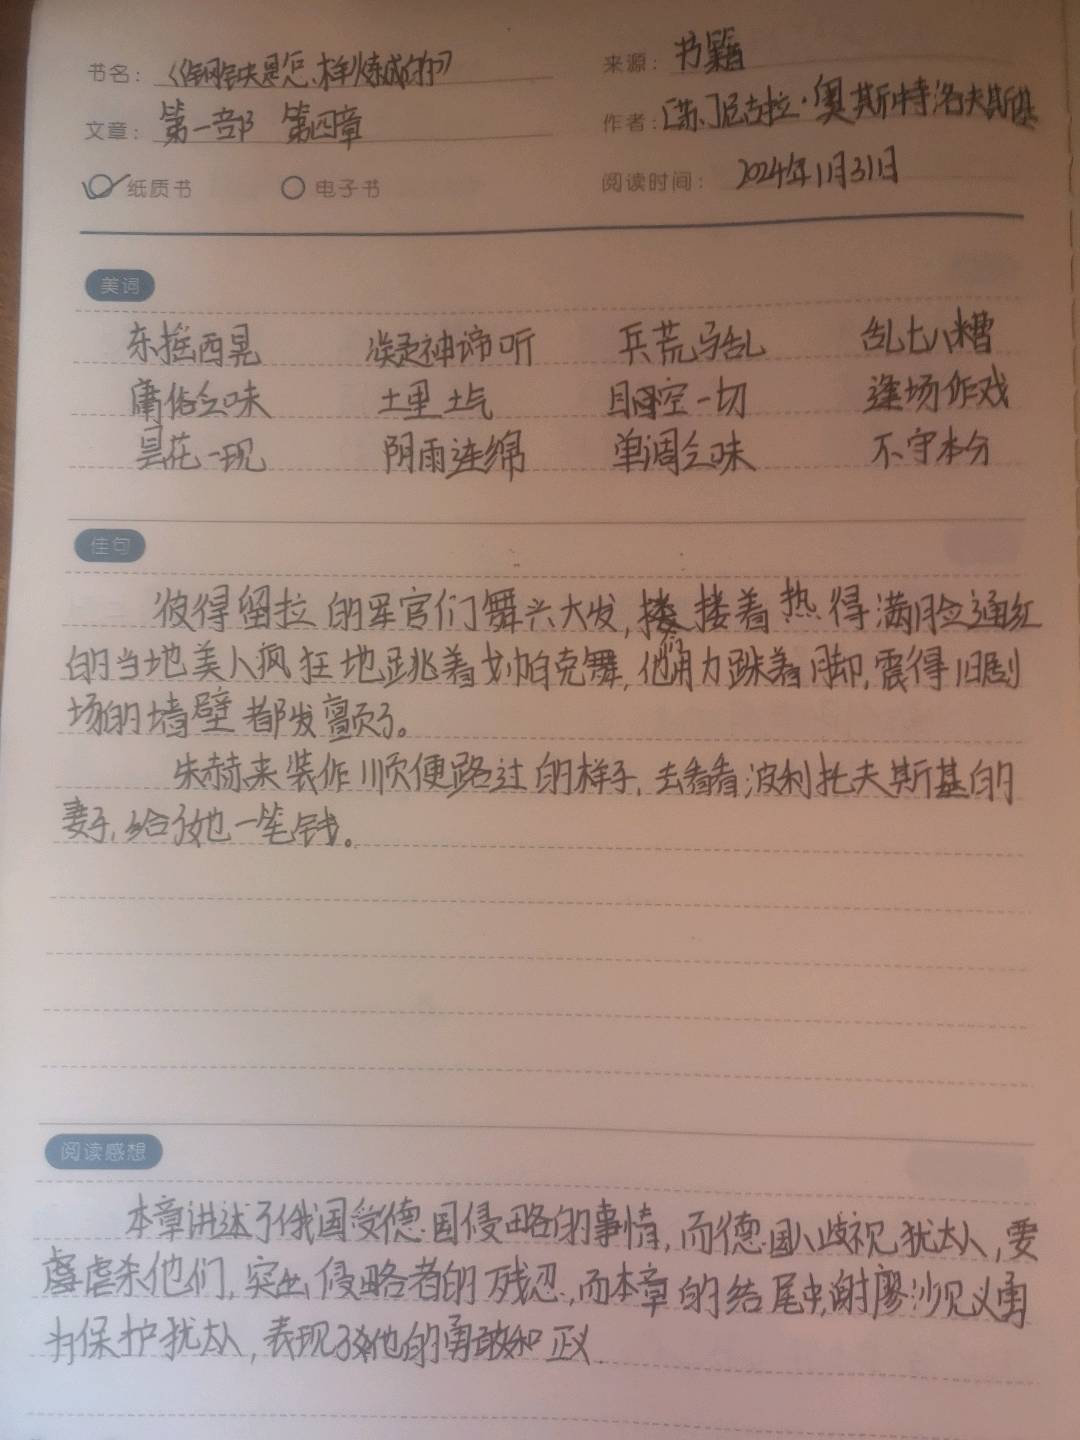 书名：《钢铁是怎样炼成的》
来源：书籍
文章：第一部 第四章
作者：[苏]尼古拉·奥斯特洛夫斯基
纸质书 电子书
阅读时间：2024年11月31日
美词
东摇西晃 凝神谛听 兵荒马乱 乱七八糟
庸俗乏味 土里土气 目空一切 逢场作戏
昙花一现 阴雨连绵 单调乏味 不守本分
佳句
彼得留拉的军官们舞兴大发，搂着热得满脸通红
的当地美人疯狂地跳着戈帕克舞，他们用力跺着脚，震得旧剧
场的墙壁都发颤了。
朱赫来装作顺便路过的样子，去看看波利托夫斯基的
妻子，给了她一笔钱。
阅读感想
本章讲述了俄国受德国侵略的事情，而德国人歧视犹太人，要
虐杀他们，突出侵略者的残忍，而本章的结尾中，谢廖沙见义勇
为保护犹太人，表现了他的勇敢和正义